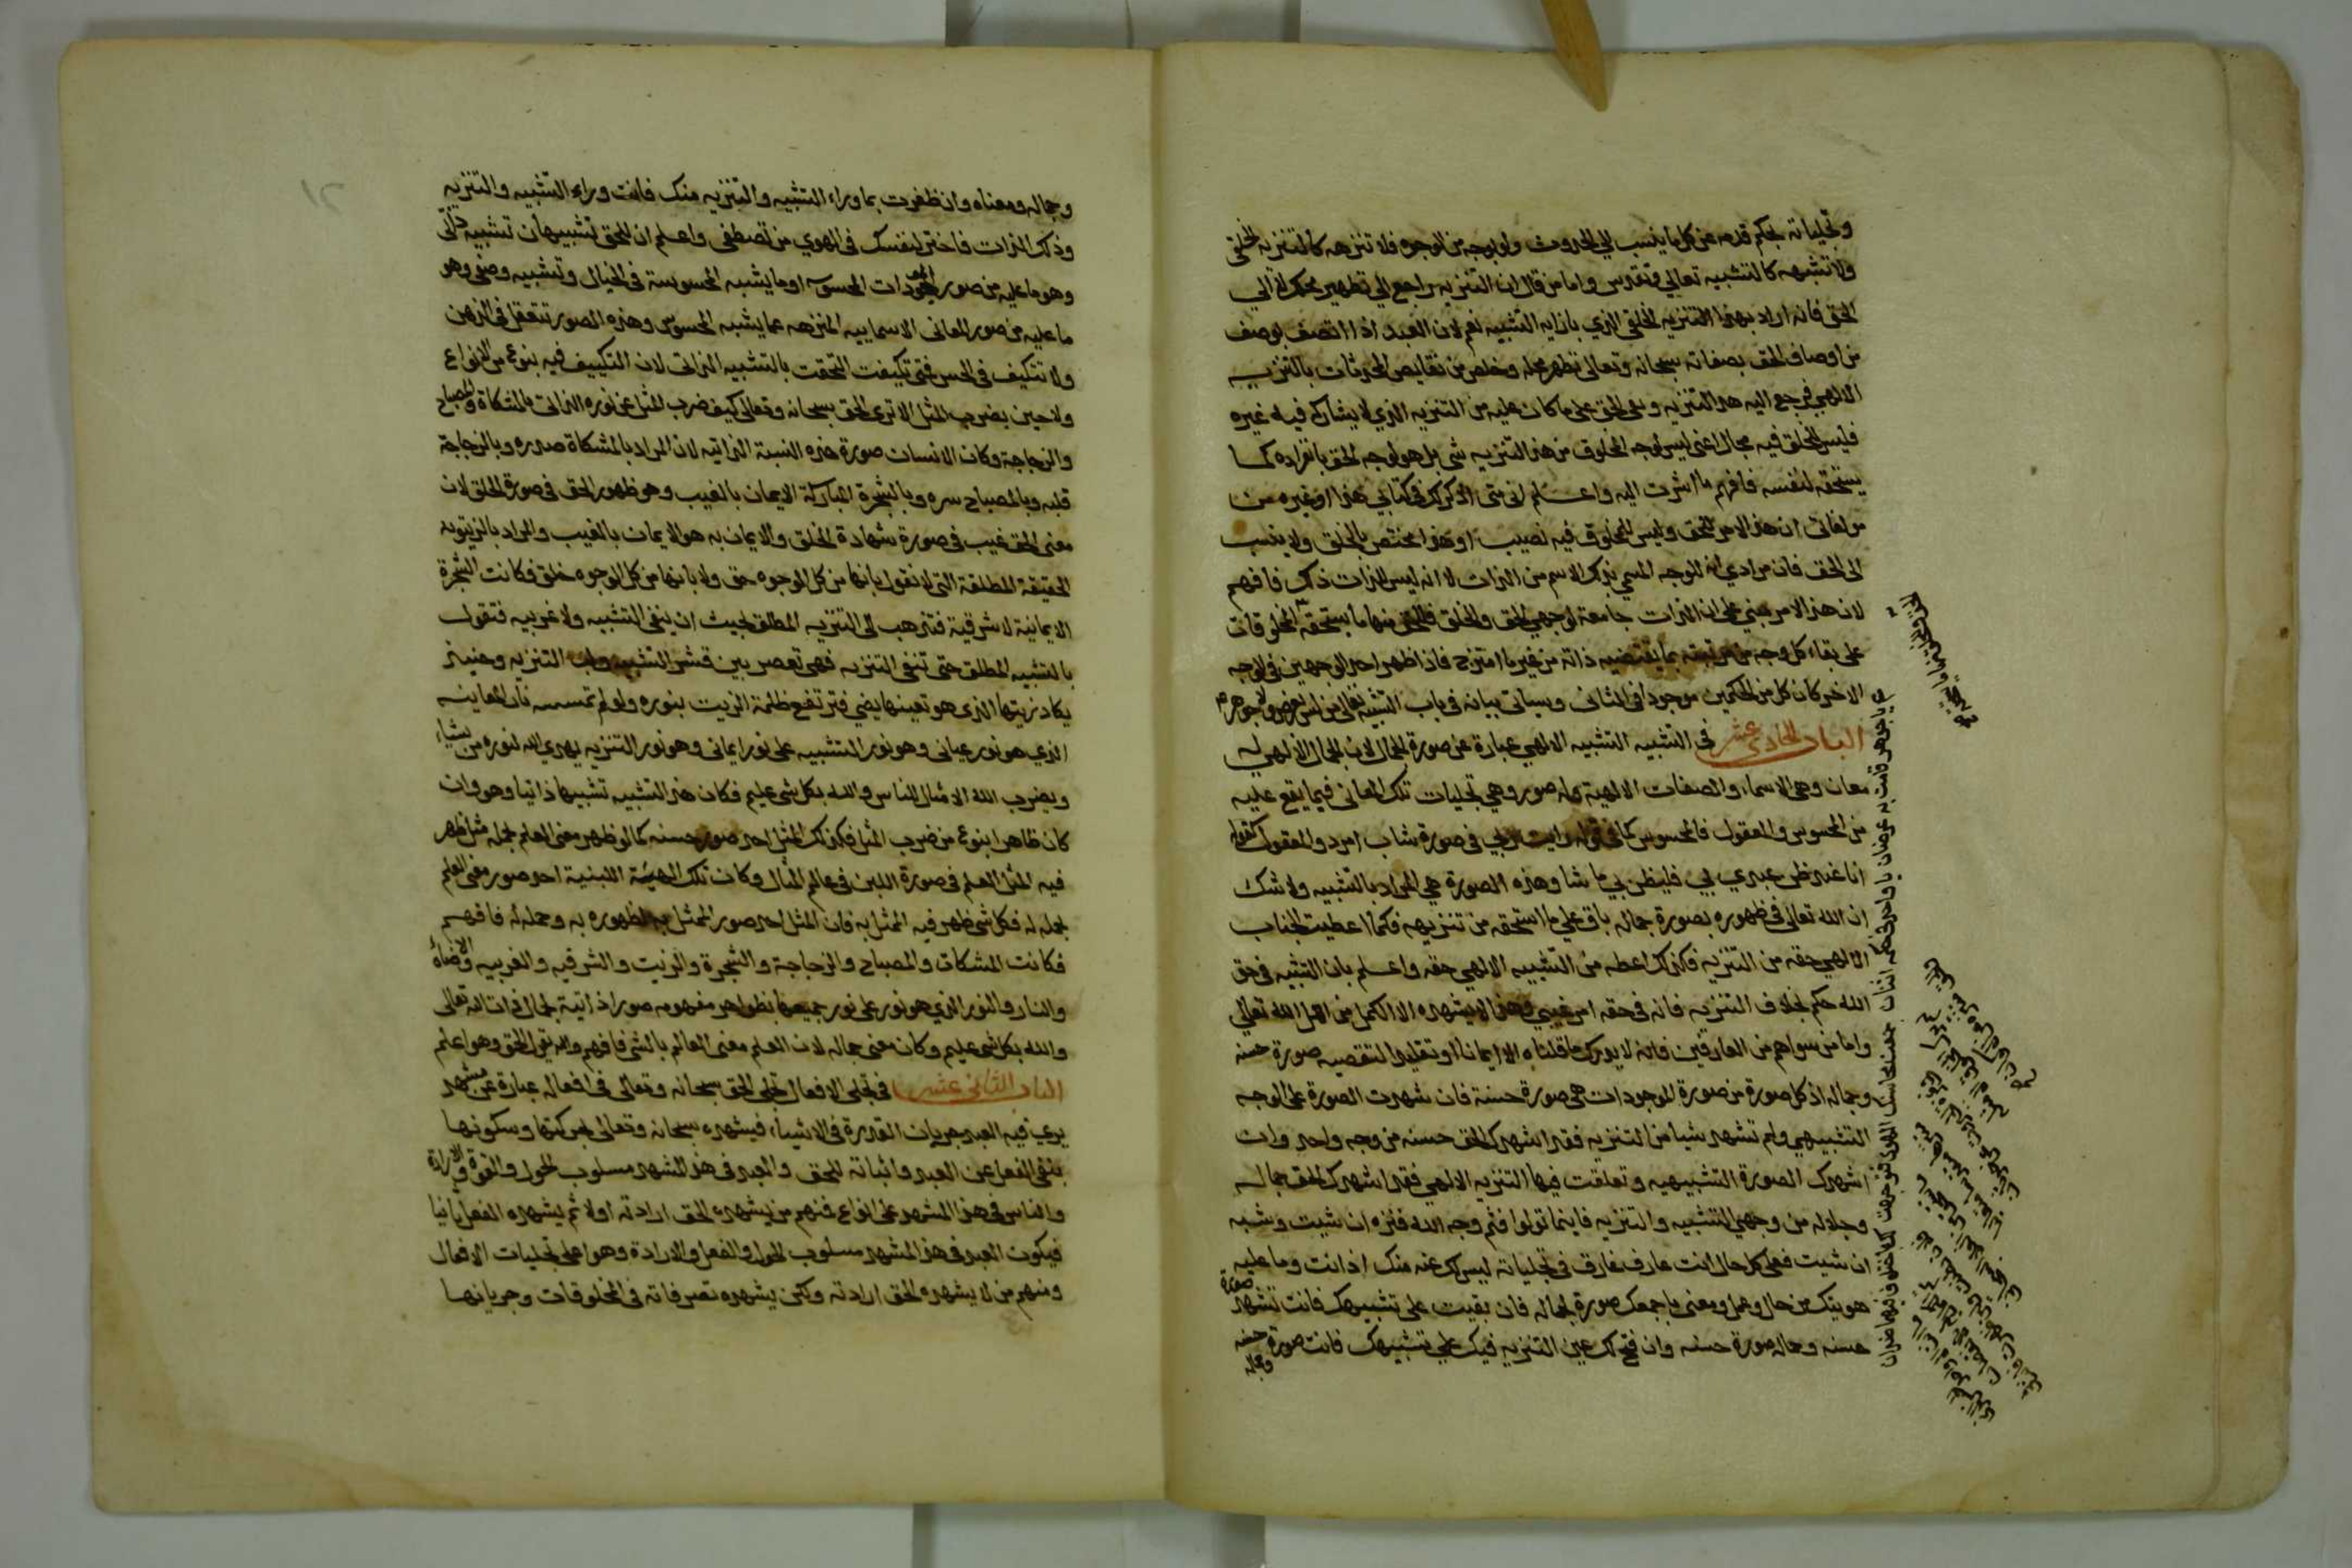 وتجلياته بحكم قدمه عن كل ما ينسب الي الحدوث ولو بوجه من الوجوه فلا تنزهه كالتنزيه الخلقي
ولا تشبهه كالتشبيه تعالي وتقدس واما من قال ان التنزيه راجع الي تطهير محلك لا الي
الحق فانه اراد بهذا التنزيه الخلقي الذي بازايه التشبيه نعم لان العبد اذا اتصف بوصف
من اوصاف الحق بصفاته سبحانه وتعالى تطهر محله وخلص من نقايص المحدثات بالتنزيه
الالهي فرجع اليه هذا التنزيه وبقي الحق على ما كان عليه من التنزيه الذي لا يشاركه فيه غيره
فليس للخلق فيه مجال اعنى ليس لوجه المخلوق من هذا التنزيه شي بل هو لوجه الحق بانفراده كما
يستحقه لنفسه فافهم ما اشرت اليه واعلم انى متى اذكر لك في كتابي هذا او غيره من
مولفاتى ان هذا الامر للحق وليس للمخلوق فيه نصيب او هذا مختص بالخلق ولا ينسب
الى الحق فان مرادي انه للوجه المسمي بذلك الاسم من الذات لا انه ليس للذات ذلك فافهم
لان هذا الامر مبني على ان الذات جامعة لوجهي الحق والخلق فللحق منها ما يستحقه المخلوقات
على بقاء كل وجه من مرتبته بما يقتضيه ذاته من غير ما امتزج فاذا ظهر احد الوجهين في الوجه
الاخر كان كل من الحكمين موجودا في الثانى وسياتى بيانه فى باب التشبيه تعالى من ليس بعرض ولا جوهر
الباب الحادى عشر فى التشبيه التشبيه الالهي عبارة عن صورة الجمال لان الجمال الالهي له
معان وهى الاسماء والصفات الالهية وله صور وهي تجليات تلك المعانى فيما يقع عليه
من المحسوس والمعقول فالمحسوس كما في قوله رايت ربي فى صورة شاب امرد والمعقول كقوله
انا عند ظن عبدي بي فليظن بي ما شا وهذه الصورة هي المراد بالتشبيه ولا شك
ان الله تعالى فى ظهوره بصورة جماله باق علي ما استحقه من تنزيهه فكما اعطيت الجناب
الالهي حقه من التنزيه فكذلك اعطه من التشبيه الالهي حقه واعلم بان التشبيه فى حق
الله حكم بخلاف التنزيه فانه فى حقه امر عيني وهذا لا يشهده الا الكمل من اهل الله تعالي
واما من سواهم من العارفين فانه لا يدرك ما قلناه الا ايمانا او تقليدا لتقضيه صورة حسنه
وجماله اذ كل صورة من صورة الموجودات هى صورة حسنة فان شهدت الصورة على الوجه
التشبيهي ولم تشهد شيا من التنزيه فقد اشهدك الحق حسنه من وجه واحد وان
اشهدك الصورة التشبيهيه وتعلقت فيها التنزيه الالهي فقد اشهدك الحق جماله
وجلاله من وجهي التشبيه والتنزيه فاينما تولوا فثم وجه الله فنزه ان شيت وشبه
ان شيت فعلى كل حال انت عارف غارق فى تجلياته ليس لك عنه منك اذ انت وما عليه
هويتك من حال وعمل ومعنى باجمعك صورة لجماله فان بقيت على تشبيهك فانت تشهد صورة
حسنه وجماله صورة حسنه وان فتح لك عين التنزيه فيك علي تشبيهك فانت صورة حسنه
وجماله
وجماله ومعناه وان ظفرت بما وراء التشبيه والتنزيه منك فانت وراء التشبيه والتنزيه
وذلك الذات فاختر لنفسك فى الهوي من تصطفى واعلم ان للحق تشبيهان تشبيه ذاتى
وهو ما عليه من صور الموجودات المحسوسه او ما يشبه المحسوسة فى الخيال وتشبيه وصفى وهو
ما عليه من صور المعانى الاسماييه المنزهه عما يشبه المحسوس وهذه الصور تتعقل فى الذهن
ولا تتكيف فى الحس فمتى تكيفت التحقت بالتشبيه الذاتى لان التكييف فيه بنوع من الانواع
ولا حين يضرب المثل الا ترى الحق سبحانه وتعالى كيف ضرب المثل عن نوره الذاتى بالمشكاة والمصباح
والزجاجة وكان الانسان صورة هذه النسبة الذاتيه لان المراد بالمشكاة صدره وبالزجاجة
قلبه وبالمصباح سره وبالشجرة المباركة الايمان بالغيب وهو ظهور الحق فى صورة الخلق لان
معنى الحق غيب فى صورة شهادة الخلق والايمان به هو الايمان بالغيب والمراد بالزيتونه
الحقيقة المطلقة التى لا نقول بانها من كل الوجوه حق ولا بانها من كل الوجوه خلق فكانت الشجرة
الايمانية لا شرقية فتذهب الى التنزيه المطلق بحيث ان ينفى التشبيه ولا غربيه فتقول
بالتشبيه المطلق حتى تنفى التنزيه فهى تعصر بين قشر التشبيه ولب التنزيه وحينيذ
يكاد زيتها الذى هو تعينها يضي فترتفع ظلمة الزيت بنوره ولو لم تمسسه نار المعاينه
الذي هو نور عيانى وهو نور التشبيه على نور ايمانى وهو نور التنزيه يهدى الله لنوره من يشاء
ويضرب الله الامثال للناس والله بكل شى عليم فكان هذا التشبيه تشبيها ذاتيا وهو وان
كان ظاهرا بنوع من ضرب المثل فكذلك المثل احد صور حسنه كما لو ظهر معنى العلم بحمله مثل ظهر
فيه المثل العلم فى صورة اللبن فى عالم المثال وكان تلك الهيئة اللبنية احد صور معنى العلم
بحمله له فكل شى ظهر فيه الممثل به فان المثل احد صور الممثل به لظهوره به وحمله له فافهم
فكانت المشكات والمصباح والزجاجة والشجرة والزيت والشرقيه والغربيه والاضاة
والنار والنور الذي هو نور على نور جميعها بظواهر مفهومه صورا ذاتية لجمال ذات الله تعالى
والله بكل شى عليم وكان معنى جماله لان العلم معنى العالم بالشى فافهم والله يقول الحق وهو اعلم
الباب الثانى عشر فى تجلى الافعال تجلى الحق سبحانه وتعالى فى افعاله عبارة عن مشهد
يرى فيه العبد جريان القدرة فى الاشياء فيشهده سبحانه وتعالى محركها وسكونها
بنفى الفعل عن العبد واثباته للحق والعبد فى هذا المشهد مسلوب الحول والقوة والارادة
والناس فى هذا المشهد على انواع فمنهم من يشهده الحق ارادته اولا ثم يشهده الفعل ثانيا
فيكون العبد فى هذا المشهد مسلوب الحول والفعل والارادة وهو اعلى تجليات الافعال
ومنهم من لا يشهده الحق ارادته ولكن يشهده تصرفاته فى المخلوقات وجريانها